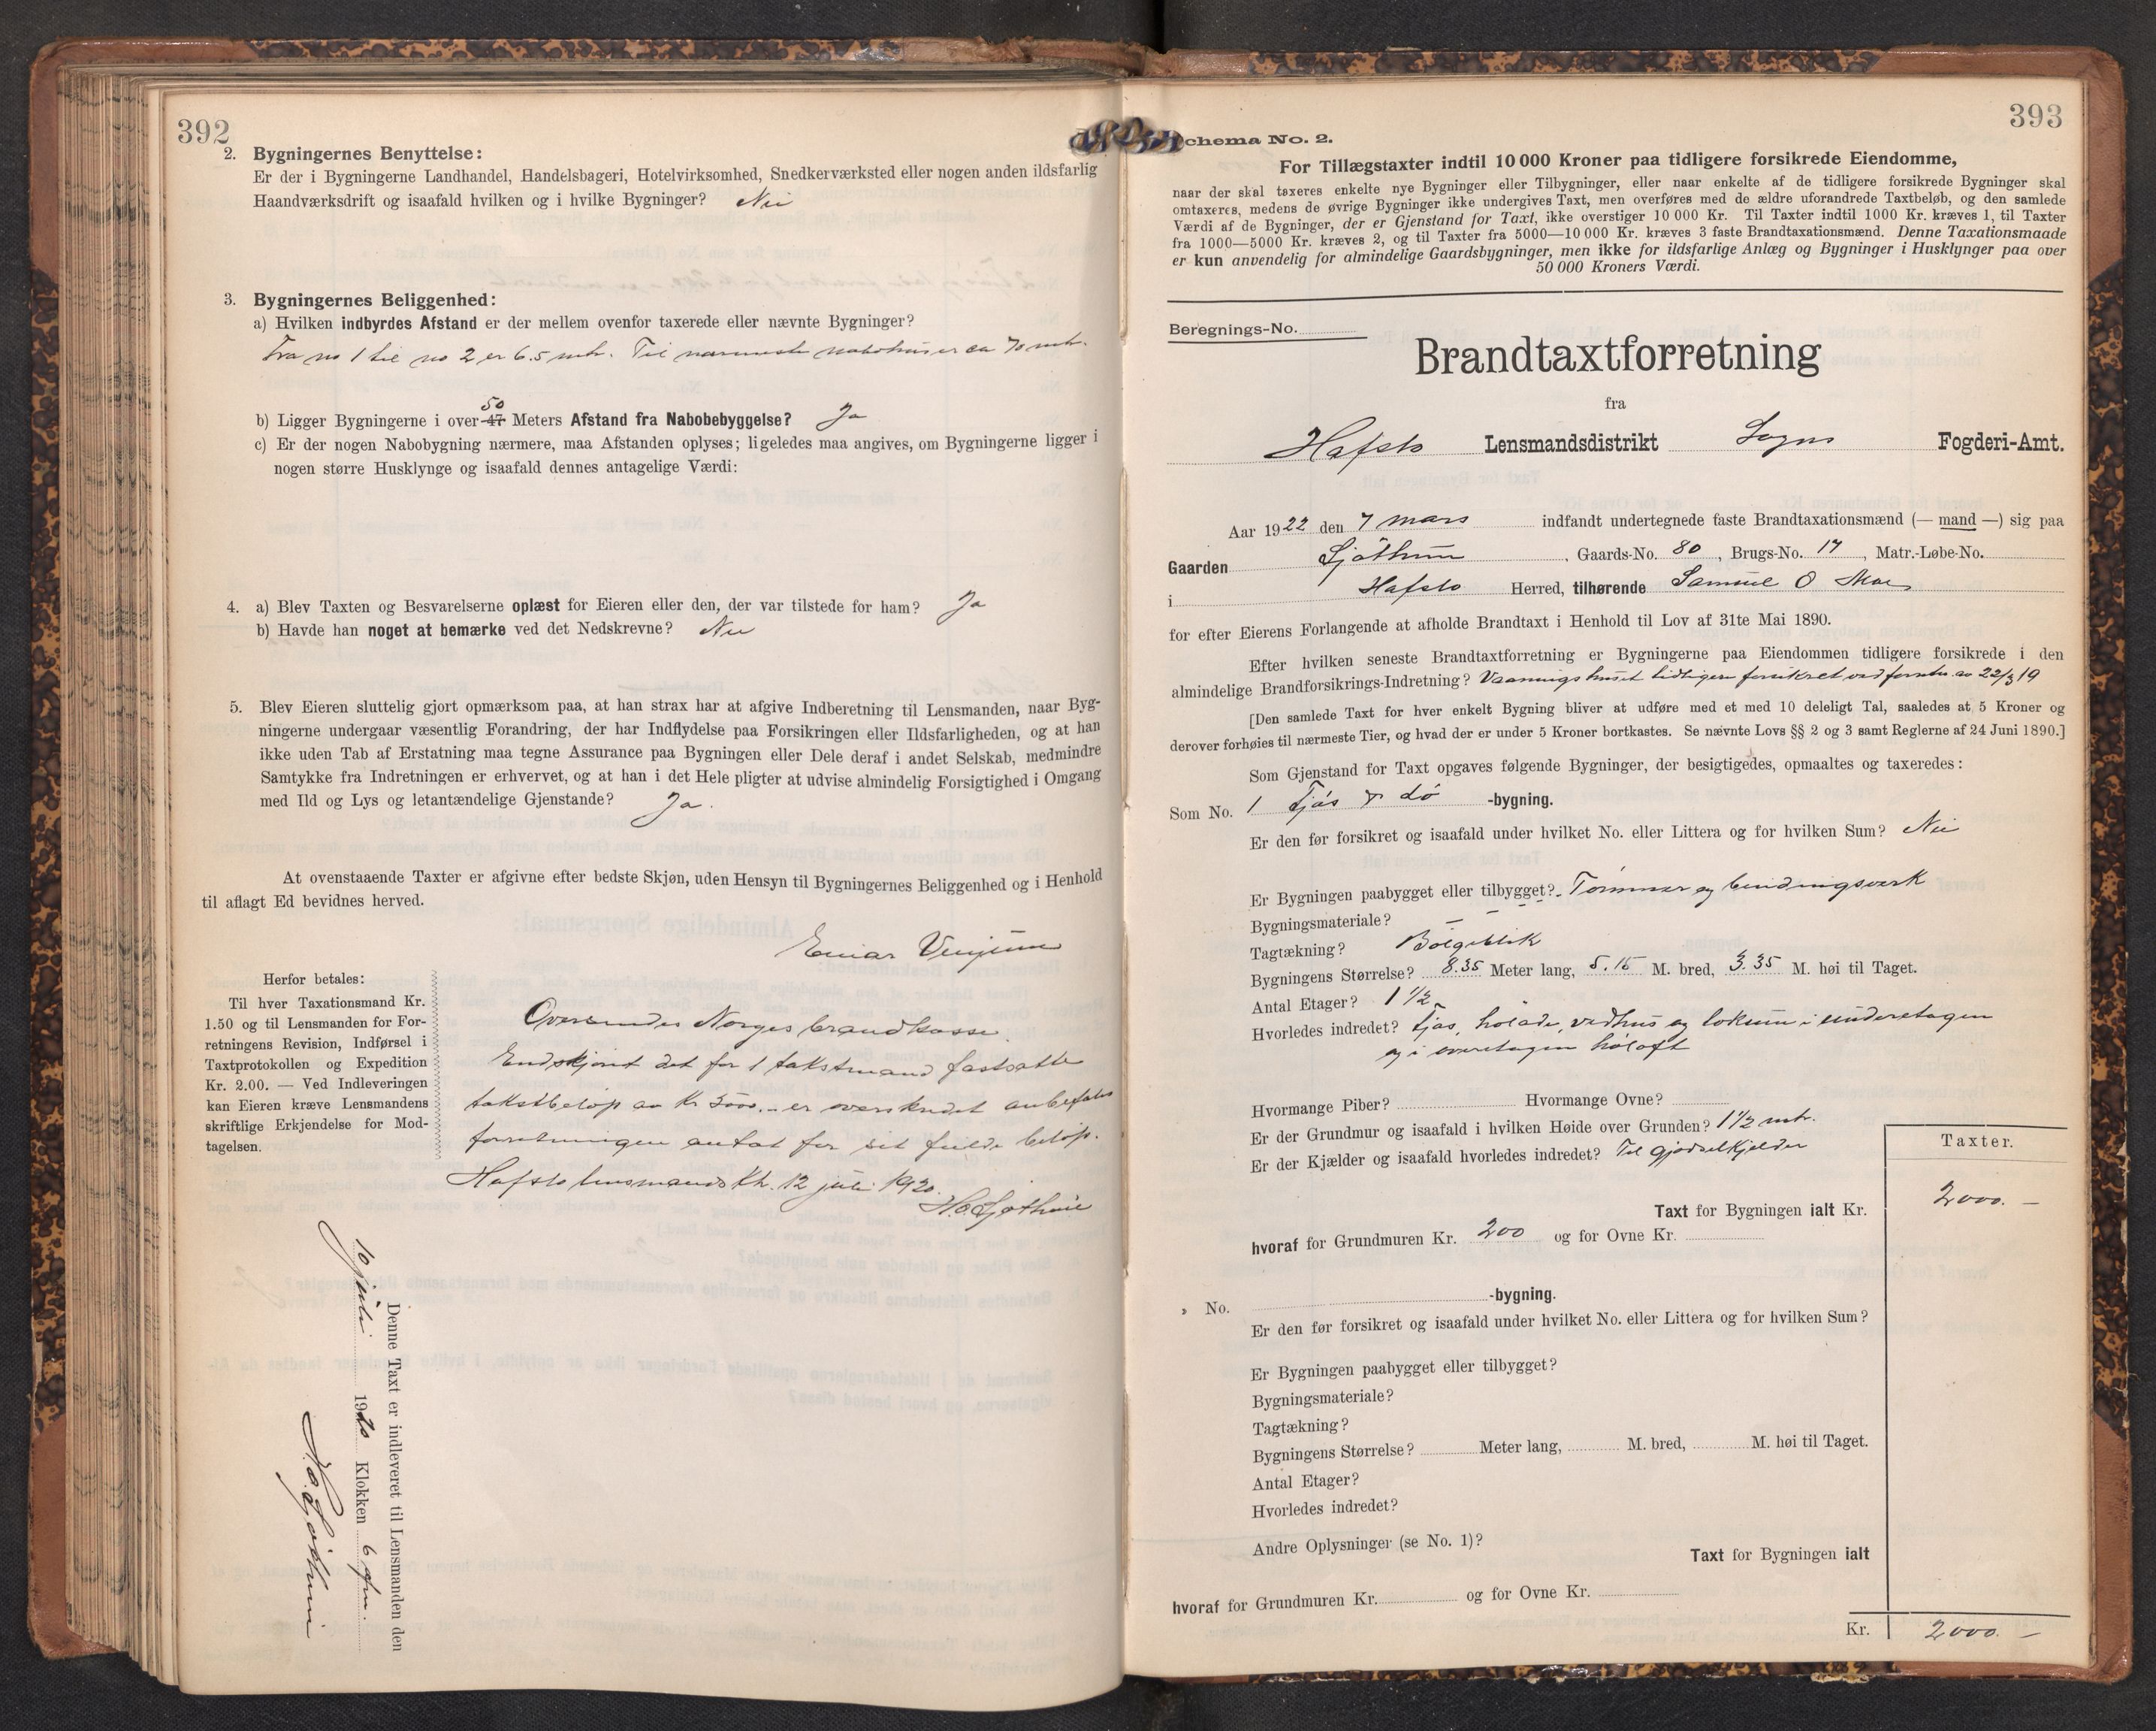 392
2. Bygningernes Benyttelse:
Er der i Bygningerne Landhandel, Handelsbageri, Hotelvirksomhed, Snedkerværksted eller nogen anden ildsfarlig
Haandværksdrift og isaafald hvilken og i hvilke Bygninger? Nei
3. Bygningernes Beliggenhed:
a) Hvilken indbyrdes Afstand er der mellem ovenfor taxerede eller nævnte Bygninger?
Fra no 1 til no 2 er 6.5 mtr. Til nærmeste nabohus er ca 70 mtr.
50
b) Ligger Bygningerne i over 47 Meters Afstand fra Nabobebyggelse? Ja
c) Er der nogen Nabobygning nærmere, maa Afstanden oplyses; ligeledes maa angives, om Bygningerne ligger i
nogen større Husklynge og isaafald dennes antagelige Værdi:
4. a) Blev Taxten og Besvarelserne oplæst for Eieren eller den, der var tilstede for ham? Ja
b) Havde han noget at bemærke ved det Nedskrevne? Nei
5. Blev Eieren sluttelig gjort opmærksom paa, at han strax har at afgive Indberetning til Lensmanden, naar Byg-
ningerne undergaar væsentlig Forandring, der har Indflydelse paa Forsikringen eller Ildsfarligheden, og at han
ikke uden Tab af Erstatning maa tegne Assurance paa Bygningen eller Dele deraf i andet Selskab, medmindre
Samtykke fra Indretningen er erhvervet, og at han i det Hele pligter at udvise almindelig Forsigtighed i Omgang
med Ild og Lys og letantændelige Gjenstande? Ja.
At ovenstaaende Taxter er afgivne efter bedste Skjøn, uden Hensyn til Bygningernes Beliggenhed og i Henhold
til aflagt Ed bevidnes herved.
Einar Venjum
Herfor betales:
Til hver Taxationsmand Kr.
1.50 og til Lensmanden for For-
retningens Revision, Indførsel i
Taxtprotokollen og Expedition
Kr. 2.00. — Ved Indleveringen
kan Eieren kræve Lensmandens
skriftlige Erkjendelse for Mod-
tagelsen.
Oversendes Norges brandkasse.
Endskjønt det for 1 takstmand fastsatte
takstbeløp av kr 5000.- er overskredet anbefales
forretningen antat for sit fulde beløp.
Hafslo lensmandskt. 12 juli 1920.
H.O. Sjøthun
Denne Taxt er indleveret til Lensmanden den
10 juli 1920 Klokken 6 efm.
H.O. Sjøthun
393
Schema No. 2.
For Tillægstaxter indtil 10 000 Kroner paa tidligere forsikrede Eiendomme,
naar der skal taxeres enkelte nye Bygninger eller Tilbygninger, eller naar enkelte af de tidligere forsikrede Bygninger skal
omtaxeres, medens de øvrige Bygninger ikke undergives Taxt, men overføres med de ældre uforandrede Taxtbeløb, og den samlede
Værdi af de Bygninger, der er Gjenstand for Taxt, ikke overstiger 10 000 Kr. Til Taxter indtil 1000 Kr. kræves 1, til Taxter
fra 1000—5000 Kr. kræves 2, og til Taxter fra 5000—10 000 Kr. kræves 3 faste Brandtaxationsmænd. Denne Taxationsmaade
er kun anvendelig for almindelige Gaardsbygninger, men ikke for ildsfarlige Anlæg og Bygninger i Husklynger paa over
50 000 Kroners Værdi.
Beregnings-No.
Brandtaxtforretning
fra
Hafslo Lensmandsdistrikt Sogns Fogderi-Amt.
Aar 1922 den 7 mars indfandt undertegnede faste Brandtaxationsmænd (— mand —) sig paa
Gaarden Sjøthun, Gaards-No. 80, Brugs-No. 17, Matr.-Løbe-No.
i Hafslo Herred, tilhørende Samuel O Moe
for efter Eierens Forlangende at afholde Brandtaxt i Henhold til Lov af 31te Mai 1890.
Efter hvilken seneste Brandtaxtforretning er Bygningerne paa Eiendommen tidligere forsikrede i den
almindelige Brandforsikrings-Indretning? Vaaningshuset tidligere forsikret ved forretn. av 22/3 19
[Den samlede Taxt for hver enkelt Bygning bliver at udføre med et med 10 deleligt Tal, saaledes at 5 Kroner og
derover forhøies til nærmeste Tier, og hvad der er under 5 Kroner bortkastes. Se nævnte Lovs §§ 2 og 3 samt Reglerne af 24 Juni 1890.]
Som Gjenstand for Taxt opgaves følgende Bygninger, der besigtigedes, opmaaltes og taxeredes:
Som No. 1 Fjøs & lø -bygning.
Er den før forsikret og isaafald under hvilket No. eller Littera og for hvilken Sum? Nei
Er Bygningen paabygget eller tilbygget? Tømmer og bindingsverk
Bygningsmateriale?
Tagtækning? Bølgeblik
Bygningens Størrelse? 8.35 Meter lang, 5.15 M. bred, 3.35 M. høi til Taget.
Antal Etager? 1 1/2
Hvorledes indredet? Fjøs, hølade, vedhus og loksum i underetagen
og i overetagen høloft
Hvormange Piber? Hvormange Ovne?
Er der Grundmur og isaafald i hvilken Høide over Grunden? 1 1/2 mtr.
Er der Kjælder og isaafald hvorledes indredet? Til gjødselkjelder
Taxter.
Taxt for Bygningen ialt Kr. 2000.—
hvoraf for Grundmuren Kr. 200 og for Ovne Kr.
» No. -bygning.
Er den før forsikret og isaafald under hvilket No. eller Littera og for hvilken Sum?
Er Bygningen paabygget eller tilbygget?
Bygningsmateriale?
Tagtækning?
Bygningens Størrelse? Meter lang, M. bred, M. høi til Taget.
Antal Etager?
Hvorledes indredet?
Andre Oplysninger (se No. 1)?
Taxt for Bygningen ialt
hvoraf for Grundmuren Kr. og for Ovne Kr.
Kr. 2000.—